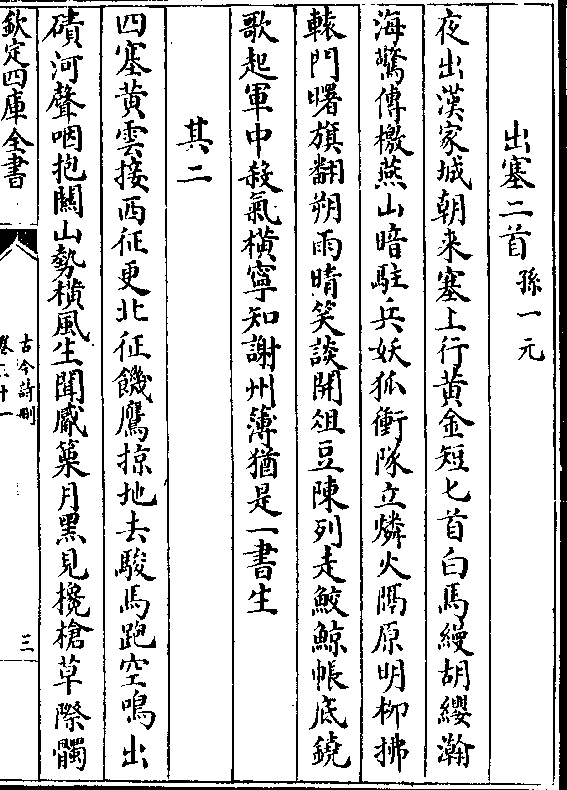 出塞二首 孫一元
夜出漢家城朝来塞上行黄金短匕首白馬縵胡纓瀚
海驚傳檄燕山暗駐兵妖狐衝隊立燐火隔原明柳拂
轅門曙旗翻朔雨晴笑談開俎豆陳列走鮫鯨帳底鐃
歌起軍中殺氣横寧知謝州薄猶是一書生
其二
四塞黄雲接西征更北征饑鷹掠地去駿馬跑空鳴出
磧河聲咽抱關山勢横風生聞觱篥月黒見欃槍草際髑
欽定四庫全書
古今詩刪
三